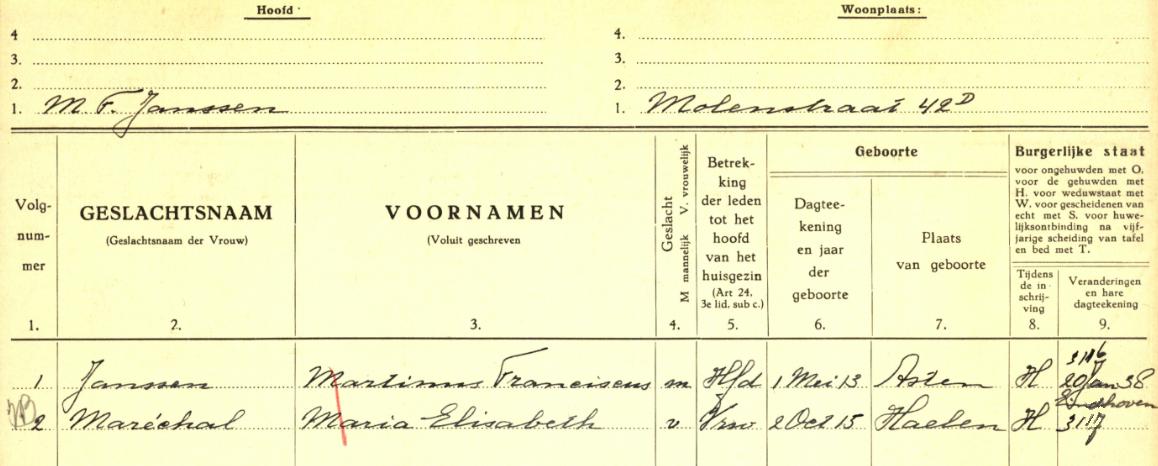 Hoofd
Woonplaats:
4 4.
3. 3.
2. 2.
1. M. F. Janssen 1. Molenstraat 42D
Volg-
num-
mer
1.
GESLACHTSNAAM
(Geslachtsnaam der Vrouw)
2.
VOORNAMEN
(Voluit geschreven
3.
Geslacht
M mannelijk V. vrouwelijk
4.
Betrek-
king
der leden
tot het
hoofd
van het
huisgezin
(Art 24,
3e lid. sub c.)
5.
Geboorte
Dagtee-
kening
en jaar
der
geboorte
6.
Plaats
van geboorte
7.
Burgerlijke staat
voor ongehuwden met O.
voor de gehuwden met
H. voor weduwstaat met
W. voor gescheidenen van
echt met S. voor huwe-
lijksontbinding na vijf-
jarige scheiding van tafel
en bed met T.
Tijdens
de in
schrij-
ving
8.
Veranderingen
en hare
dagteekening
9.
1 Janssen Martinus Franciscus m Hfd 1 Mei 13 Asten H 20 Jan 38
Eindhoven
2 Maréchal Maria Elisabeth v Vrw 2 Oct 15 Haelen H